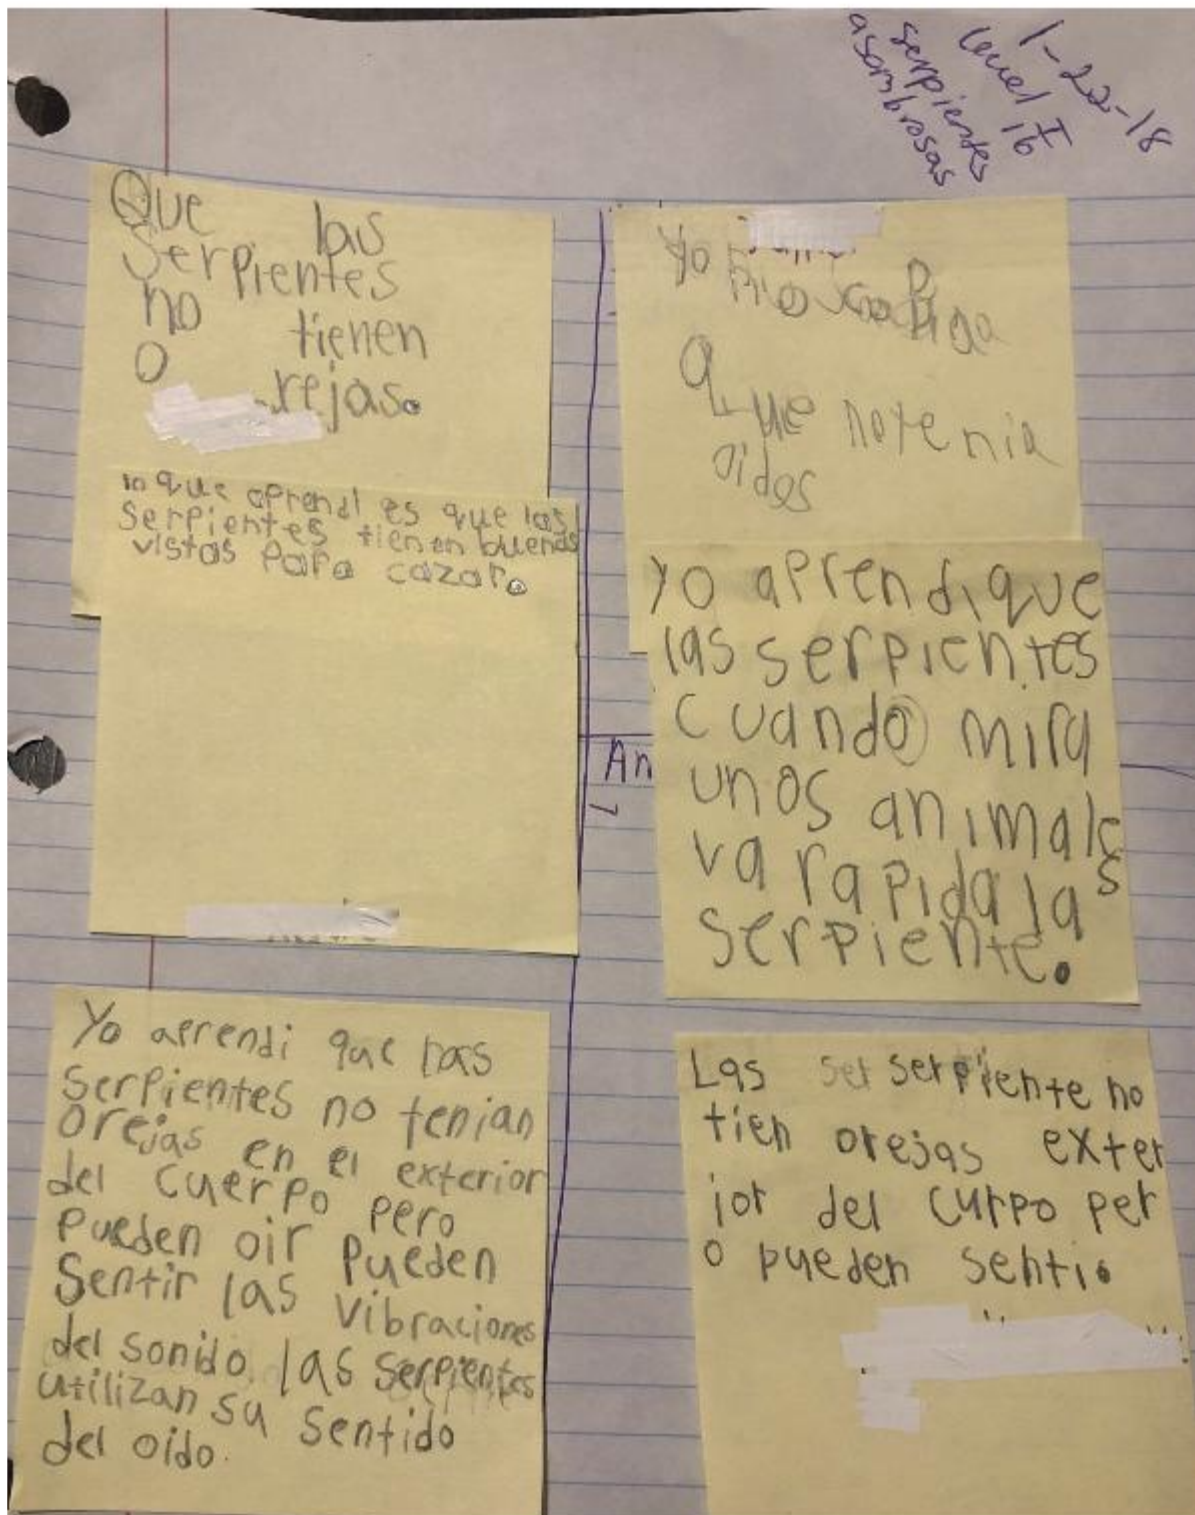 1-22-18
level I
16
serpientes
asombrosas
Que las
serpientes
no tienen
O rejas.
lo que aprendi es que las
serpientes tienen buenas
vistas para cazar.
Yo aprendi que las
serpientes no tenian
orejas en el exterior
del cuerpo pero
pueden oir pueden
sentir las vibraciones
del sonido las serpientes
utilizan su sentido
del oido.
yo
que no tenia
oidos
An
yo aprendi que
las serpientes
cuando mira
unos animale
s
va rapida la
serpiente.
Las ser serpiente no
tien orejas exter
ior del curpo per
o pueden senti.